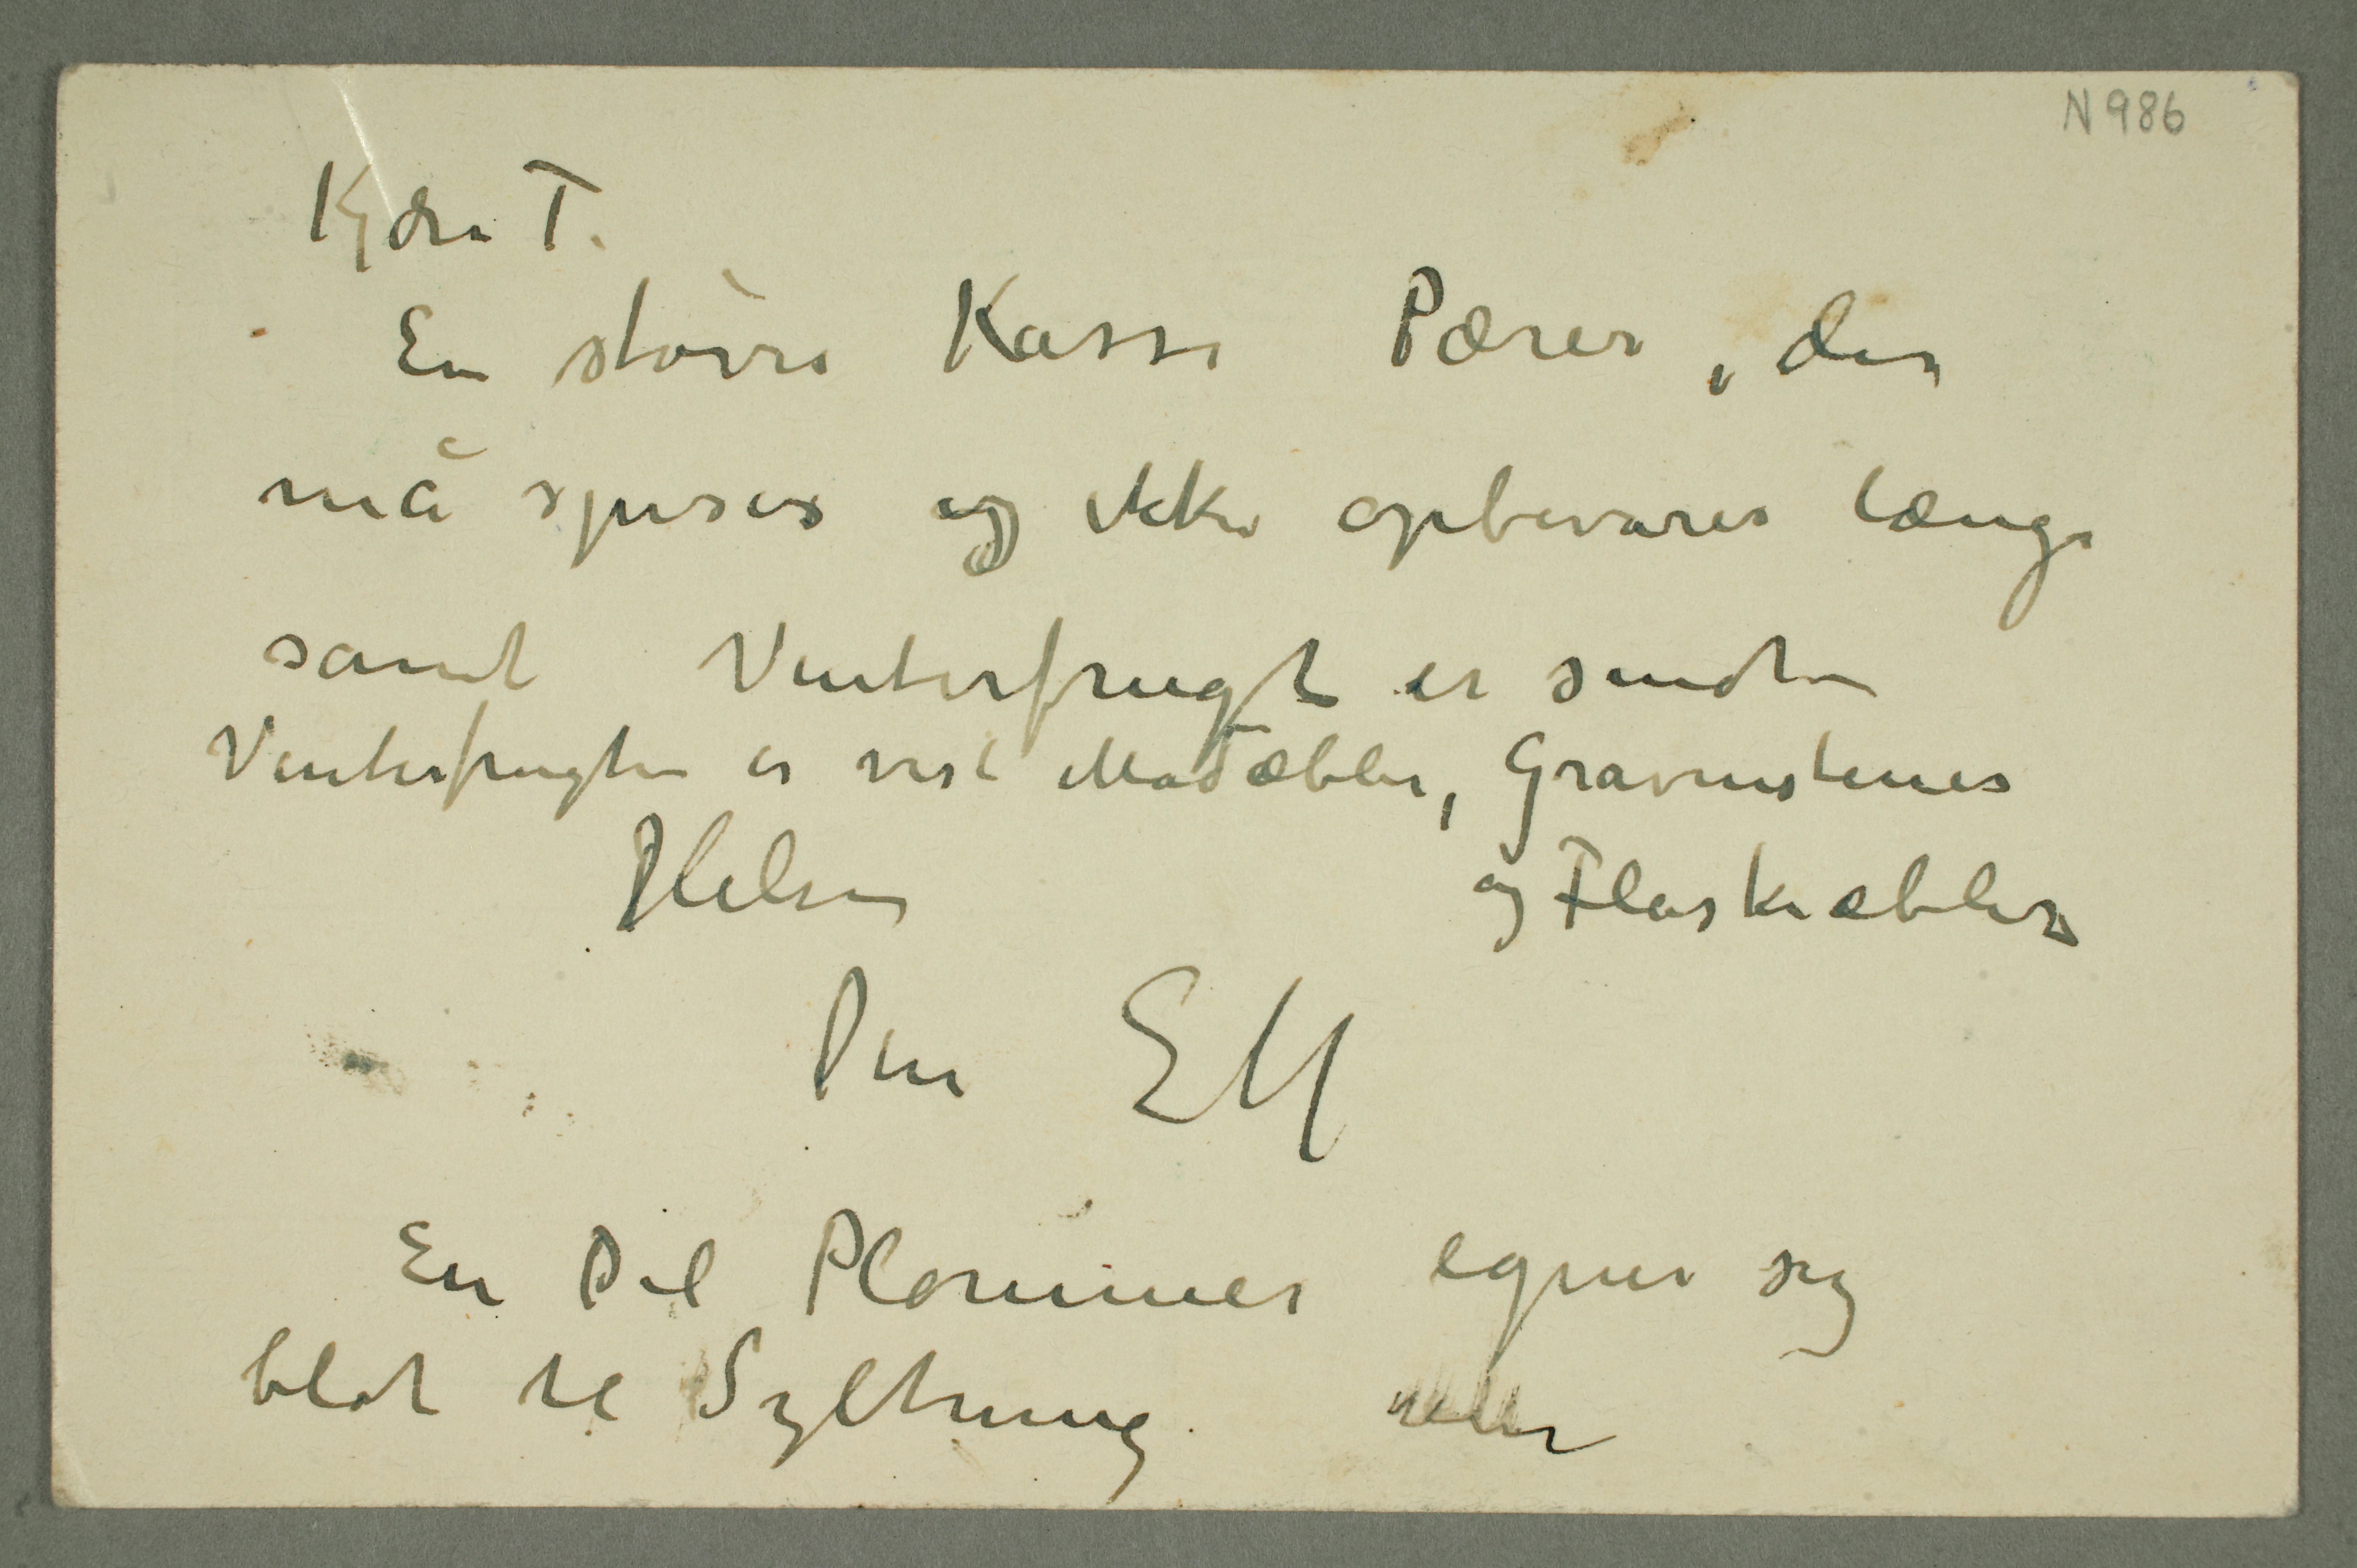 N 986
Kjære T.
En større Kasse Pærer, der
må spises og ikke opbevares længe
samt Vinterfrugt er sendt
Vinterfrugten er vist Madæbler, Gravenstenes
og Flaskeæbler
Hilsen
Din EM
En Del Plommer egner sig
blot til Syltning.